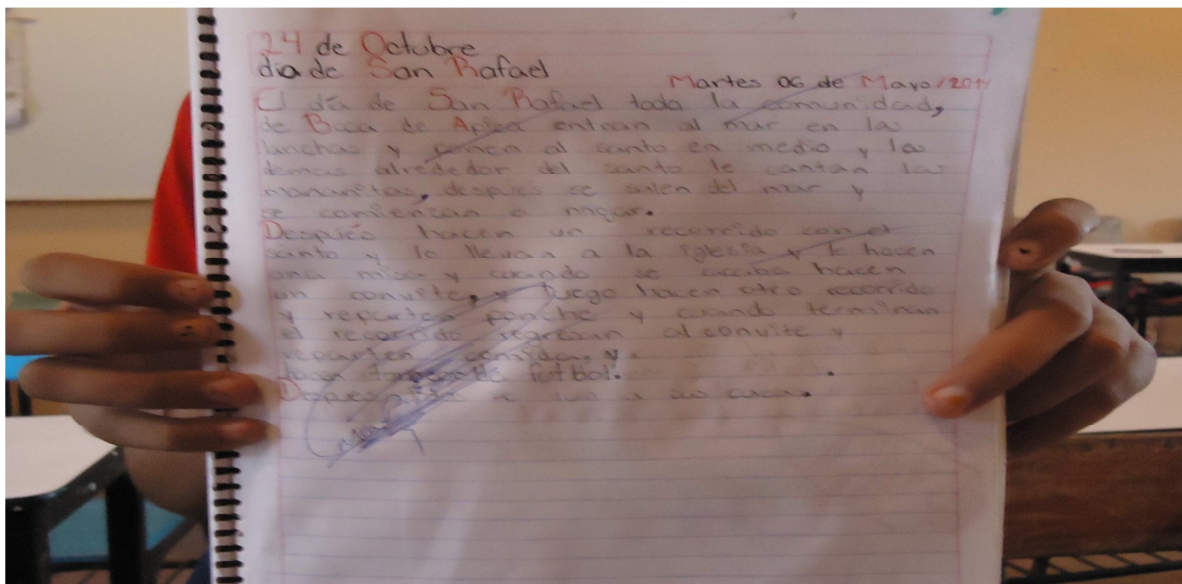 24 de Octubre
dia de San Rafael
Martes 06 de Mayo/2014
El día de San Rafael toda la comunidad,
de Boca de Apiza entran al mar en las
lanchas y ponen al santo en medio y las
demas alrededor del santo le cantan las
mananitas, despues se salen del mar y
se comienzan a
Después hacen un recorrido con el
santo y lo llevan a la iglesia y le hacen
una misa y cuando se acaba hacen
un convite, y luego hacen otro recorrido
y reparten ponche y cuando terminan
el recorrido regresan al convite y
reparten comida, y
hacen de futbol.
Despues a sus casas.